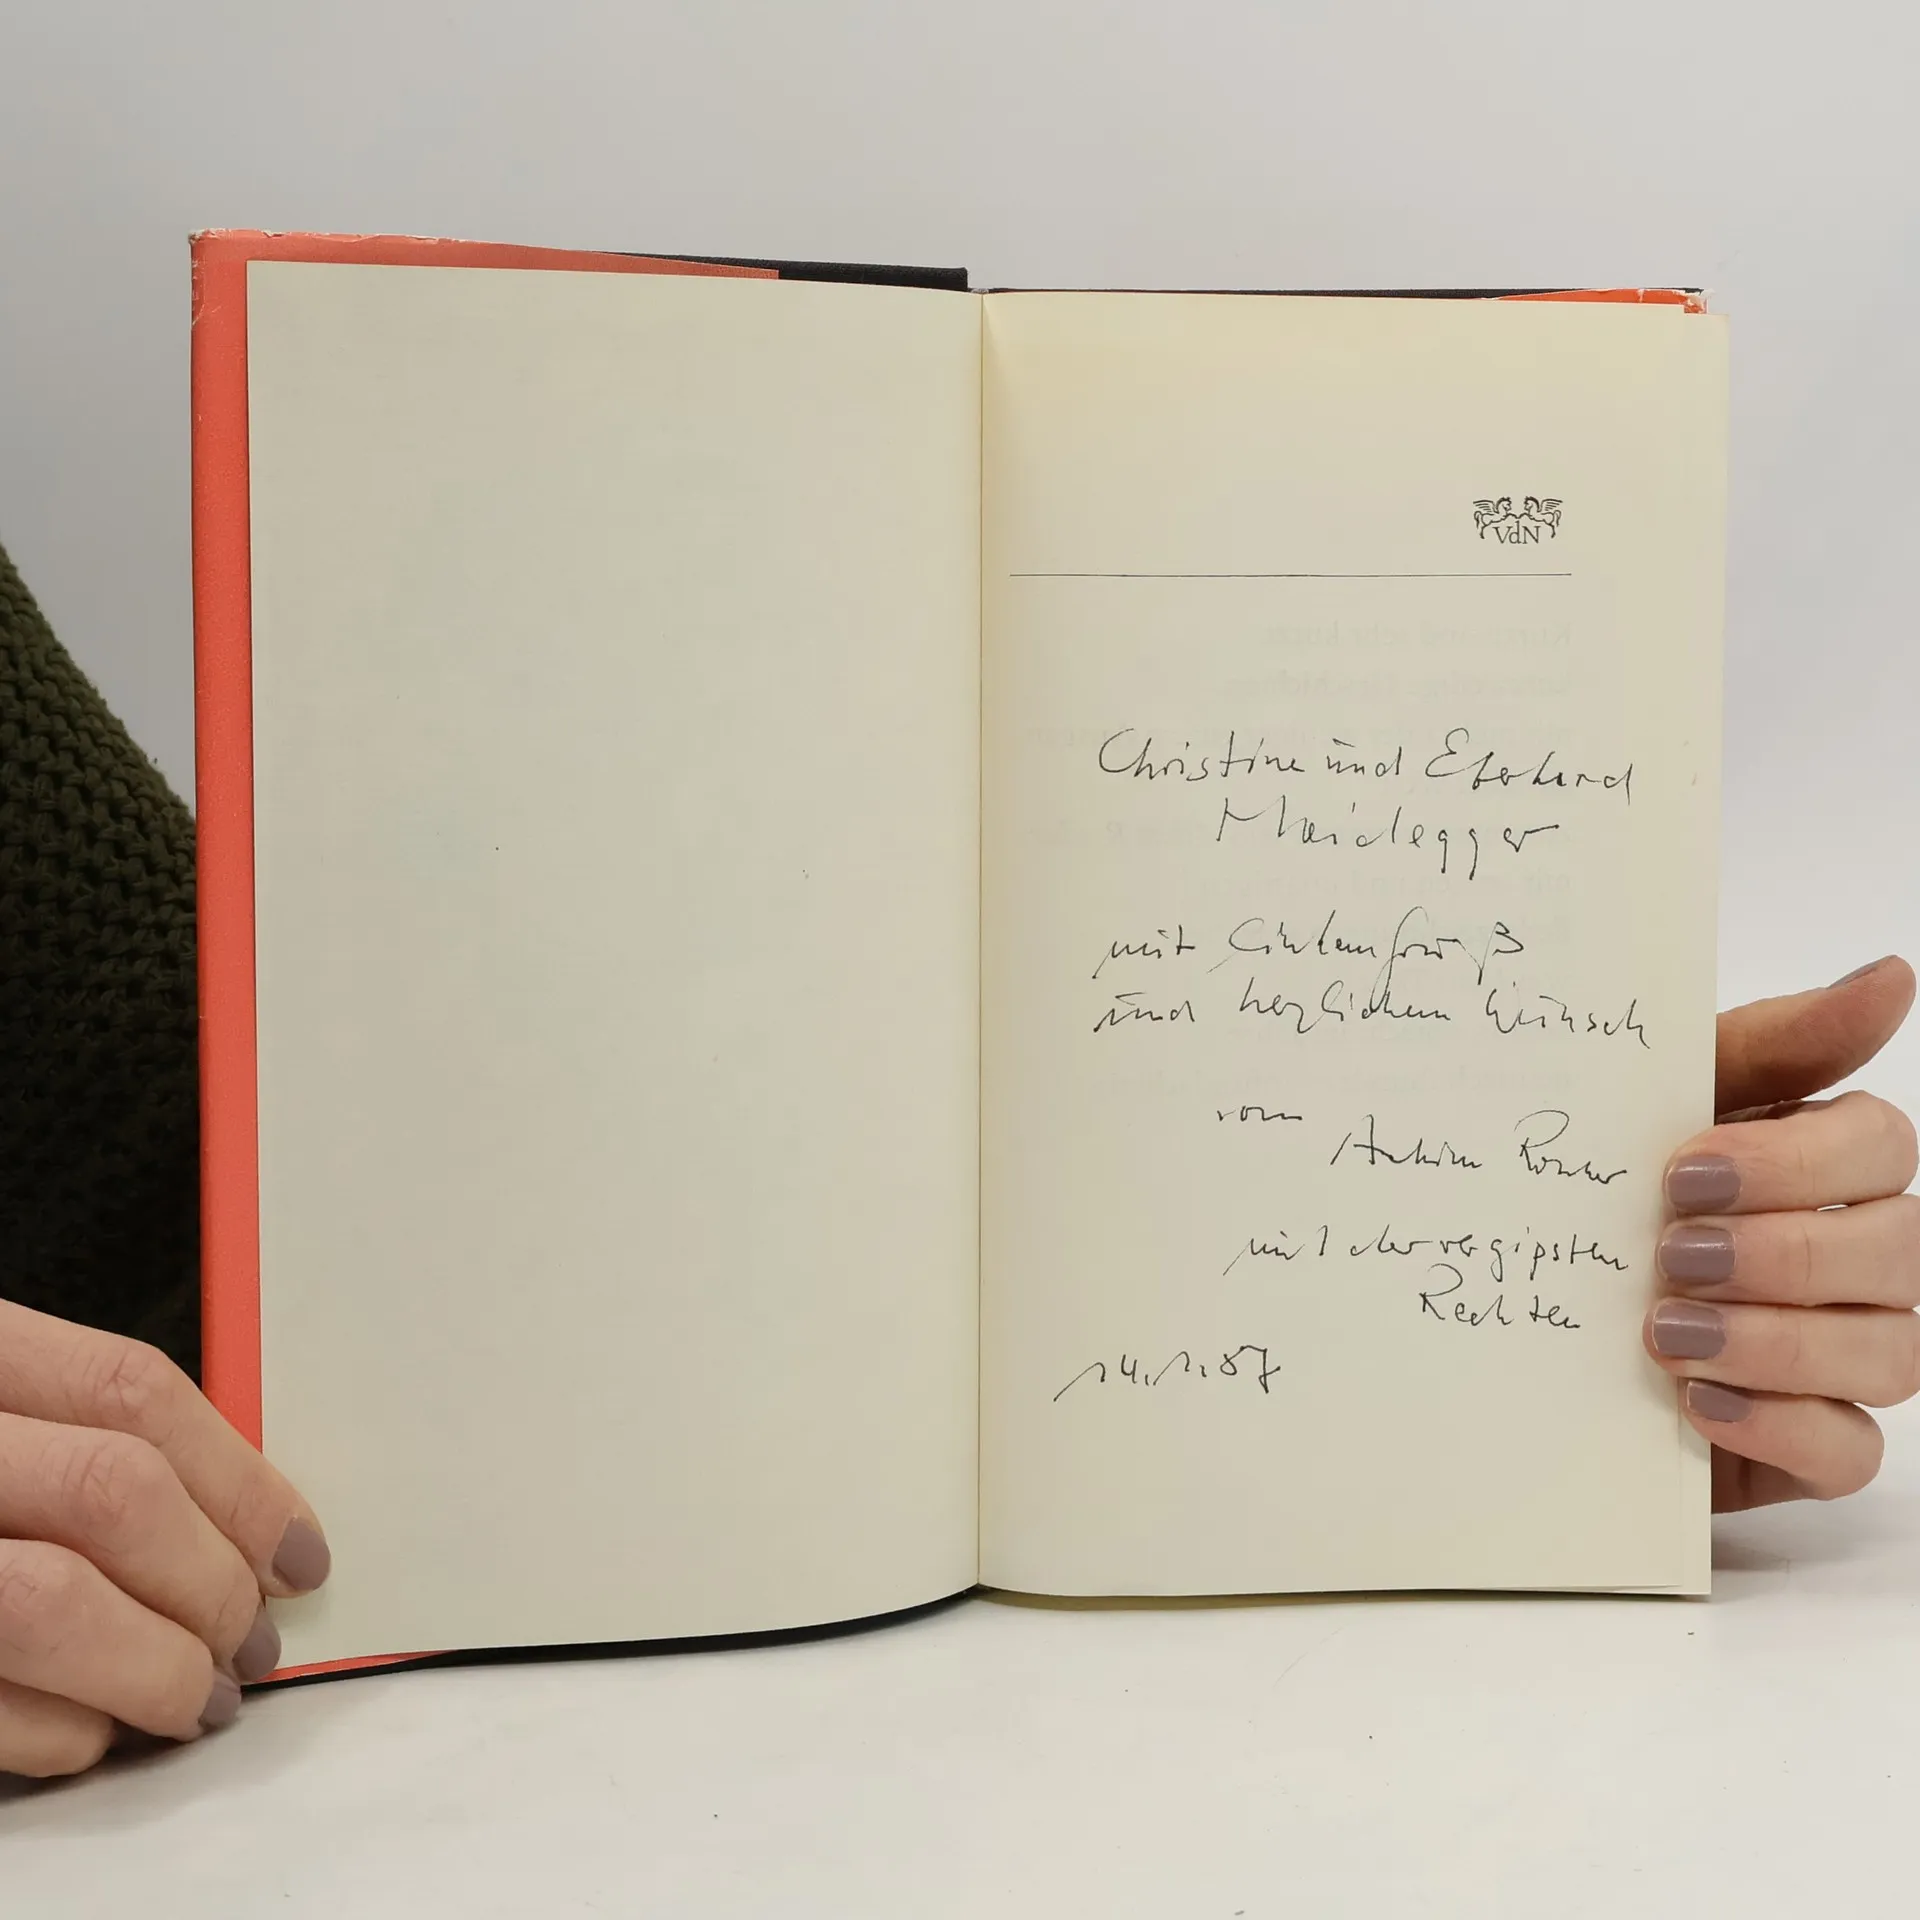 VdN
Christine und Eberhard
Heidegger
mit Lindengruß
und herzlichem Wunsch
vom
Achim
mit der vergipsten
Rechten
14.1.87